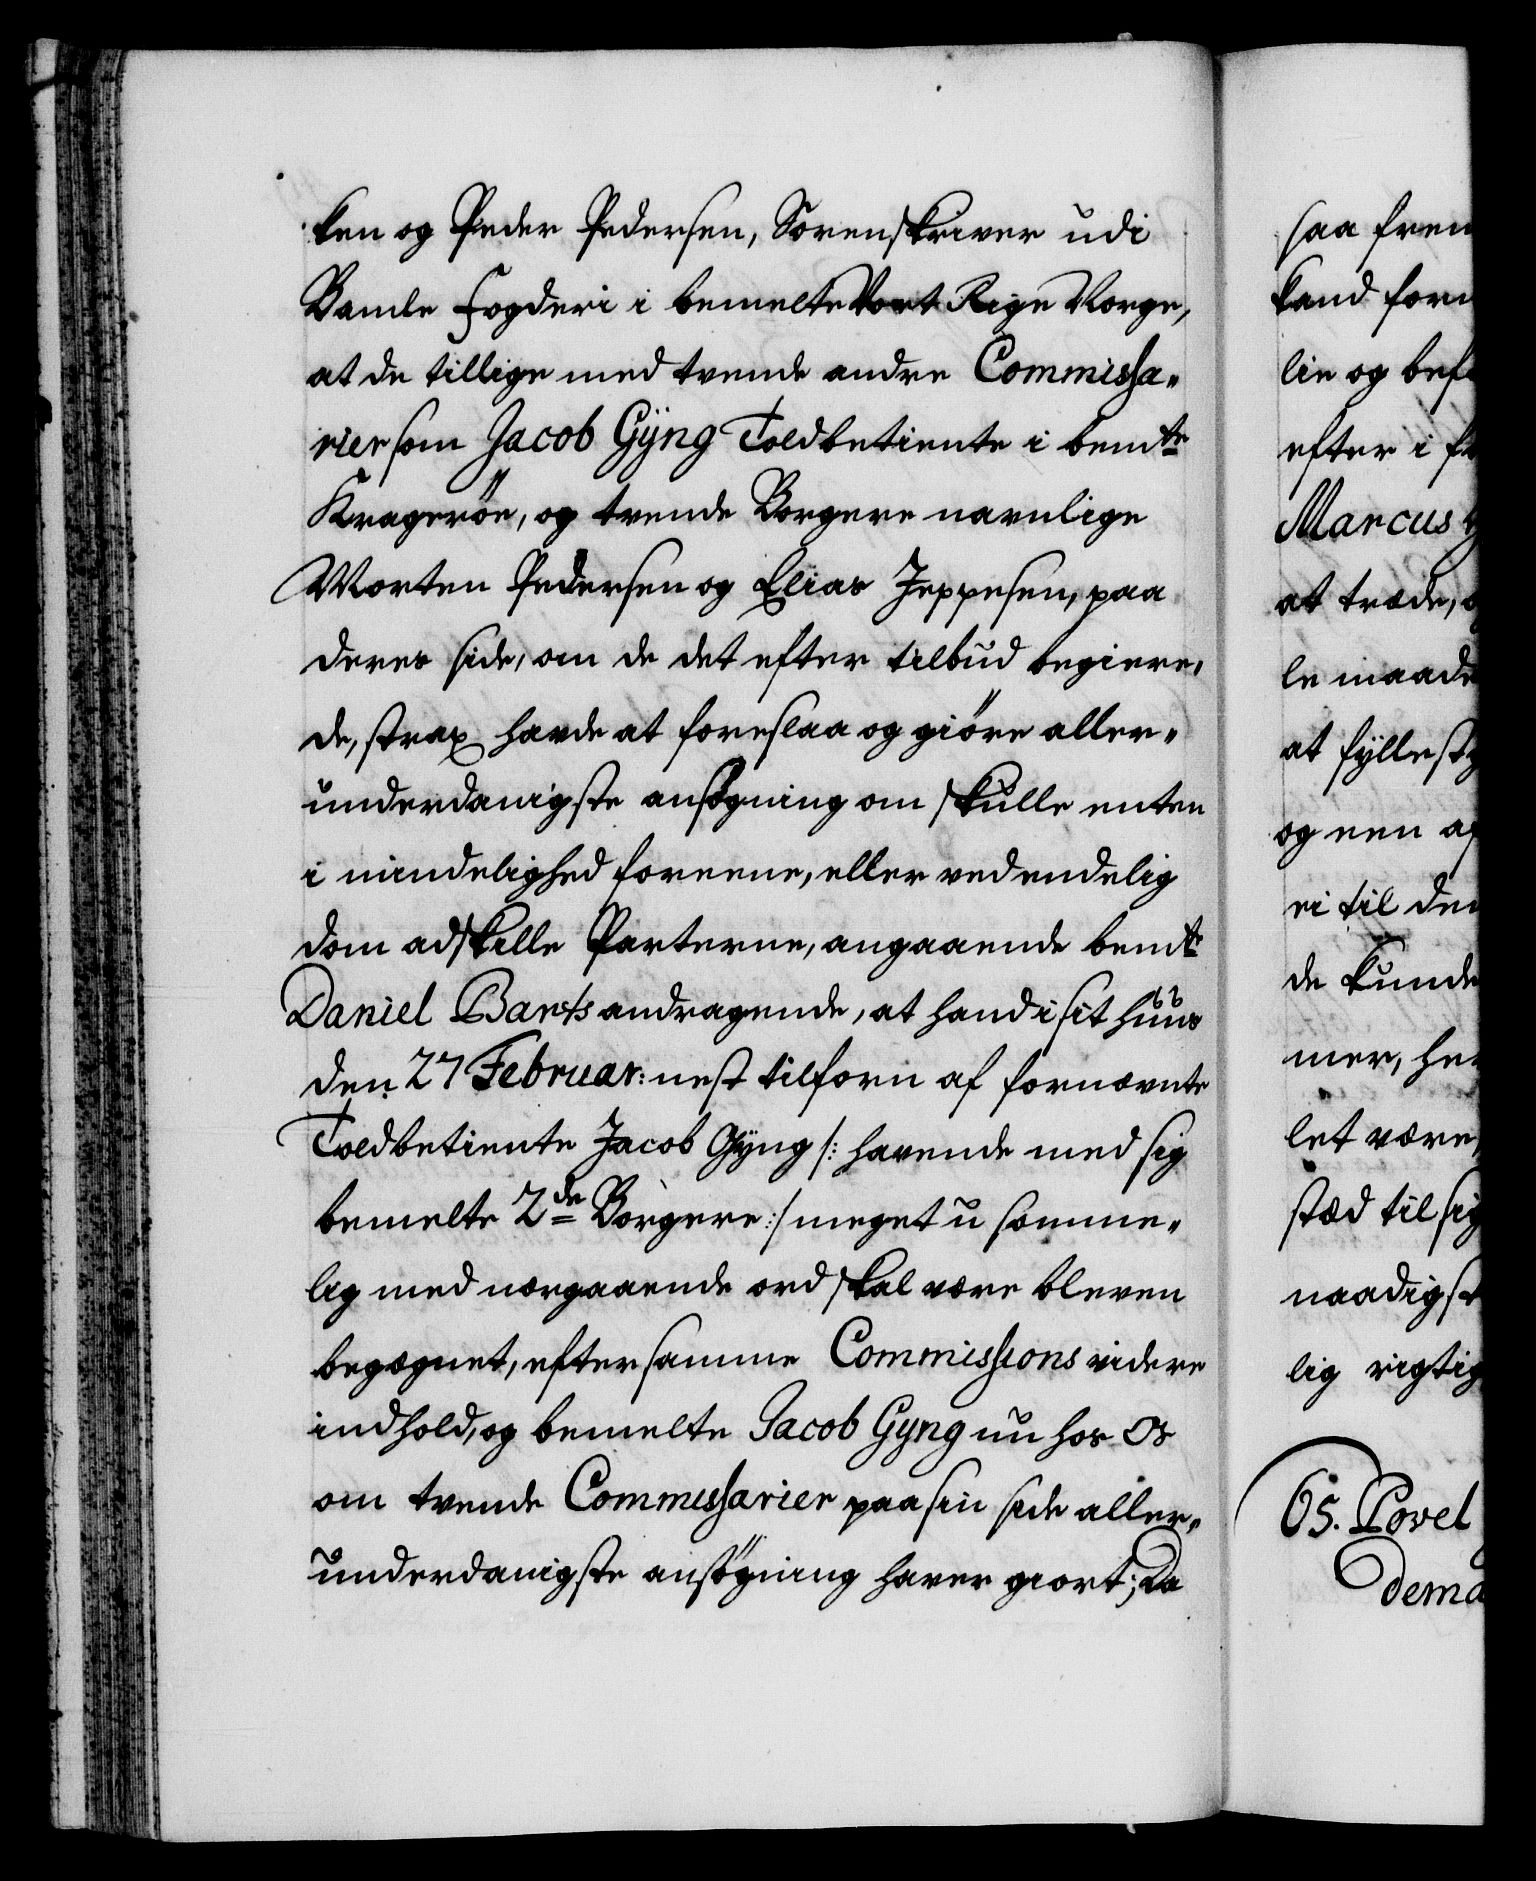 ken og Peder Pedersen, Sorenskriver udi
Bamle Fogderi i bemelte Vort Rige Norge,
at de tillige med tvende andre Commissa„
rier som Jacob Gÿng Toldbetiente i bemte
Krageröe, og tvende Borgere navnlige
Morten Pedersen og Elias Jeppesen, paa
deres side, om de det efter tilbud begiere„
de, strax havde at foreslaa og giöre aller„
underdanigste ansögning om skulle enten
i mindelighed foreene, eller ved endelig
dom adskille Parterne, angaaende bemte
Daniel Barts andragende, at hand i sit huus
den 27 Februar: nest tilforn af fornævnte
Toldbetiente Jacob Gÿng /: havende med sig
bemelte 2de Borgere :/ meget u somme„
lig med nærgaaende ord skal være bleven
begægnet, efter samme Commissions videre
indhold, og bemelte Jacob Gyng nu hos Os
om tvende Commissarier paa sin side aller„
underdanigste ansögning haver giort; Da
saa frem
kand forn
lie og bef
efter i
Marcus
at træde,
le maade
at fÿllest
og een af
ei til den
de kunde
mer, he
let være,
stæd til sig
naadigst
lig rigtig
65. Povel
dema